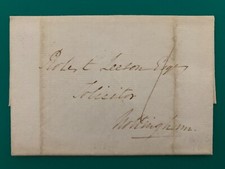 Robert Leeson Esqr
Solicitor
Nottingham